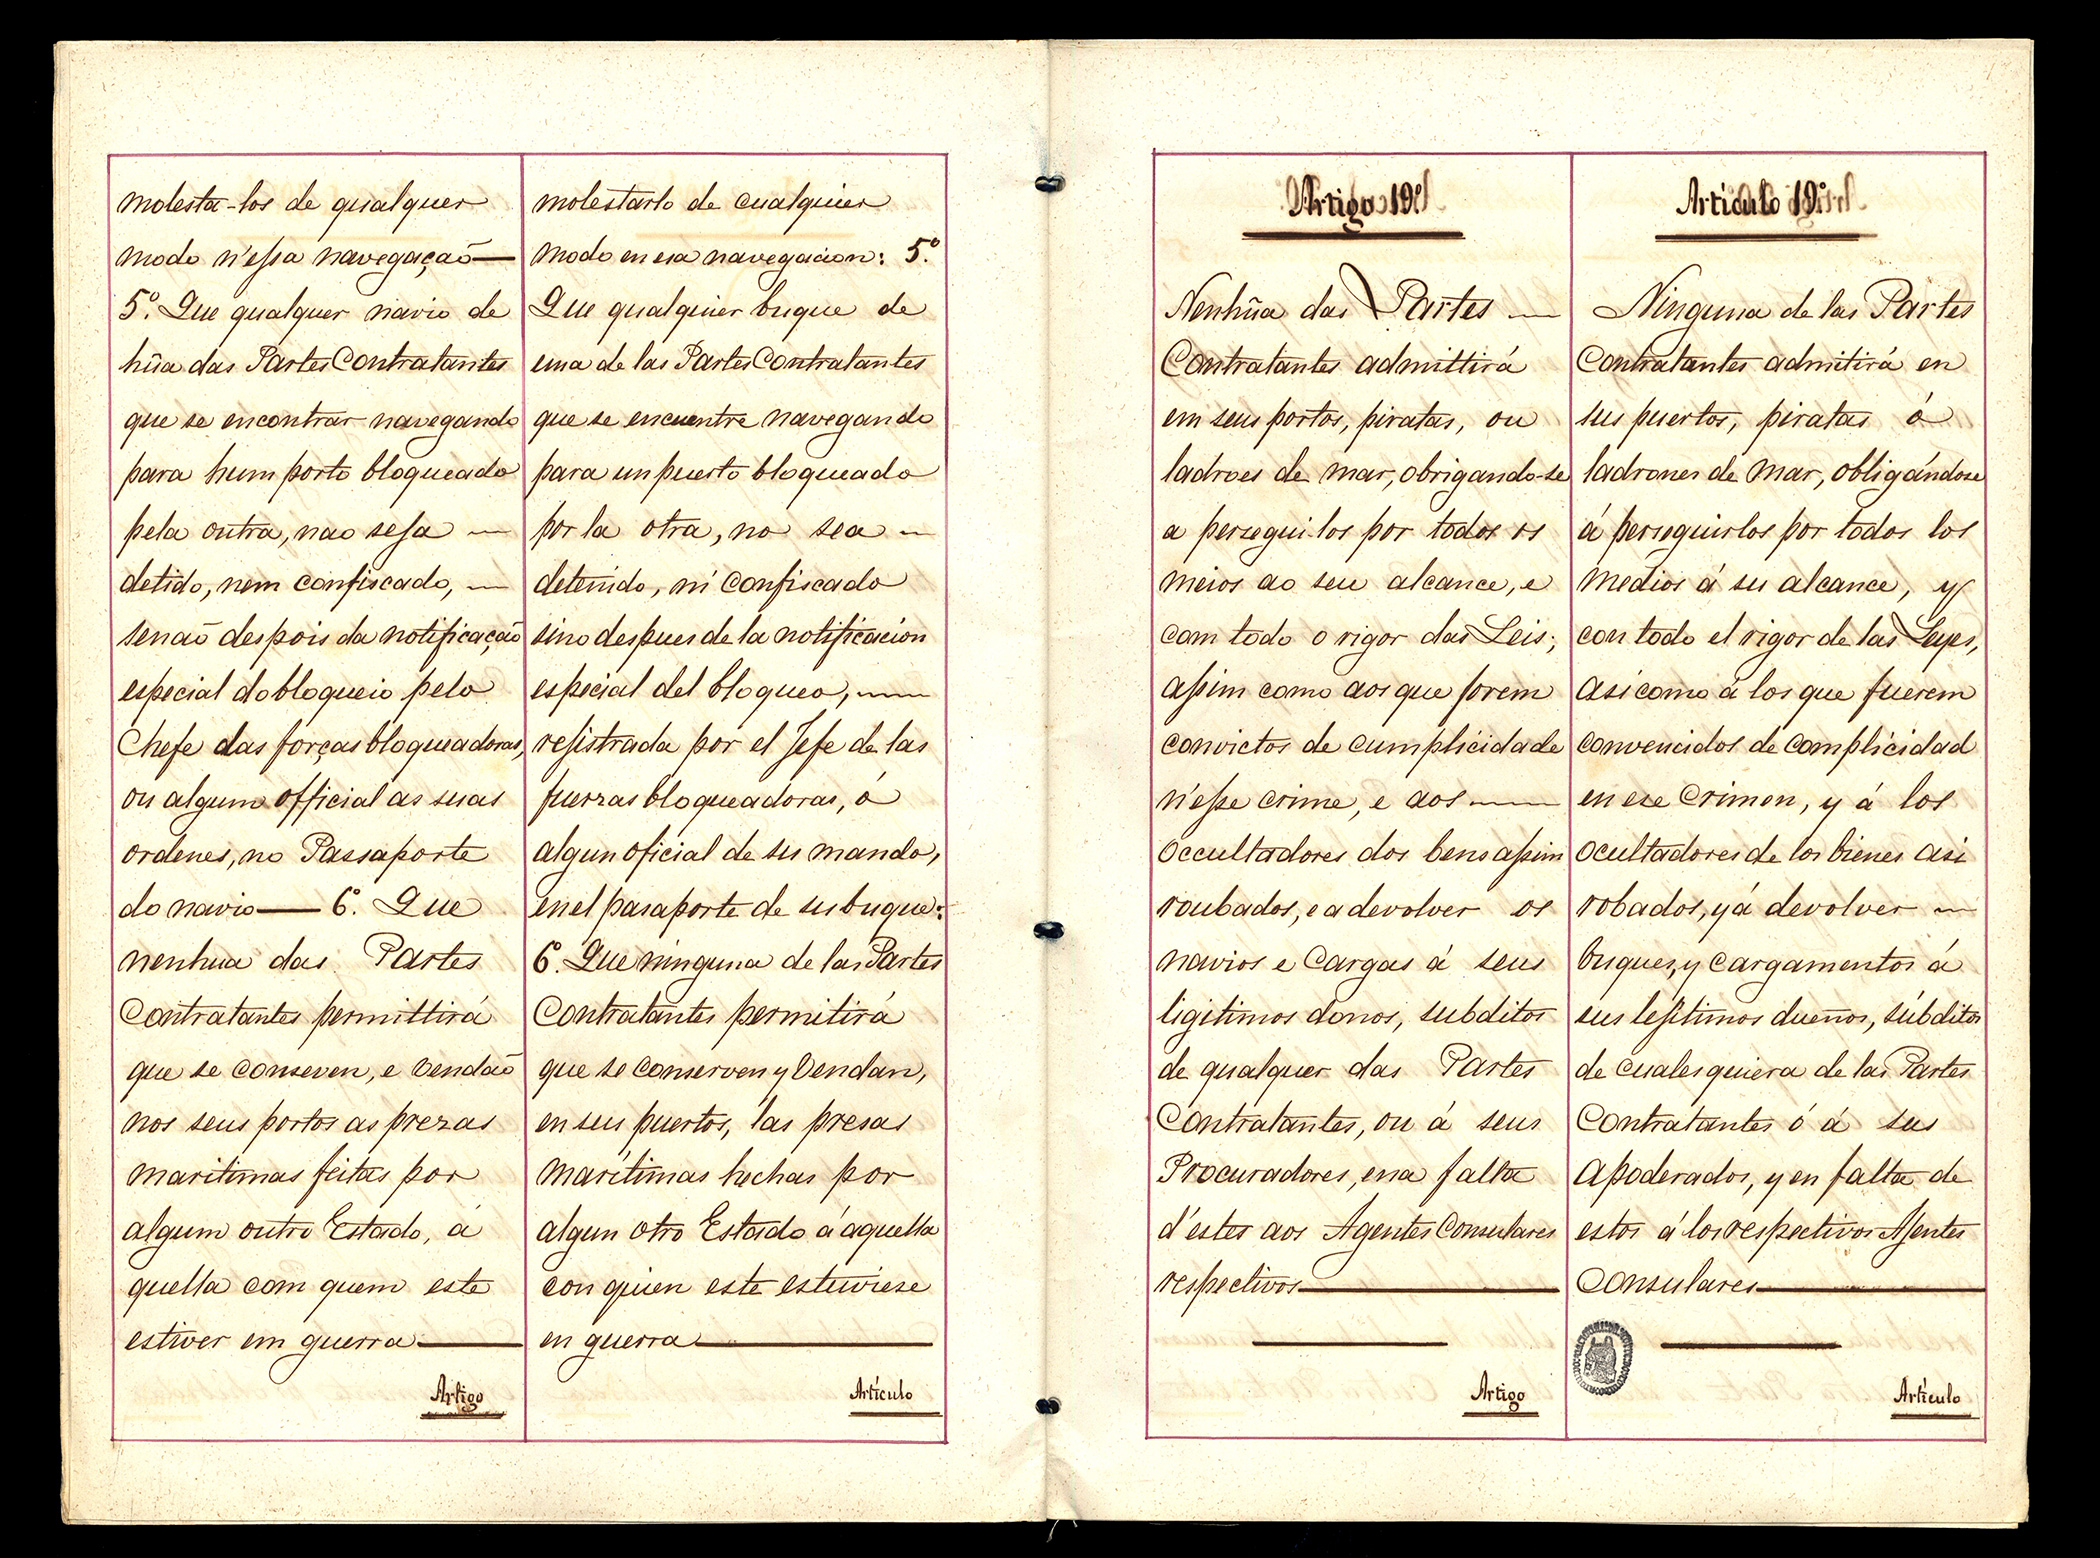 molesta-los de qualquer
modo n'essa navegação —
5º. Que qualquer navio de
hũa das Partes Contratantes
que se encontrar navegando
para hum porto bloqueado
pela outra, nao seja —
detido, nem confiscado, —
senaõ despois da notificação
especial do bloqueio pelo
Chefe das forças bloqueadoras,
ou algum official as suas
ordenes, no Passaporte
do navio — 6º. Que
nenhua das Partes
Contratantes permittirá
que se conseven, e vendaõ
nos seus portos as prezas
maritimas feitas por
algum outro Estado, á
quella com quem este
estiver em guerra —
Artigo
molestarlo de cualquier
modo en esa navegacion: 5º.
Que qualquier buque de
una de las Partes Contratantes
que se encuentre navegando
para un puerto bloqueado
por la otra, no sea —
detenido, ni confiscado
sino despues de la notificacion
especial del bloqueo, —
rejistrada por el Jefe de las
fuerzas bloqueadoras, ó
algun oficial de su mando,
en el pasaporte de su buque:
6º. Que ninguna de las Partes
Contratantes permitirá
que se conserven y vendan,
en sus puertos, las presas
marítimas hechas por
algun otro Estado á aquella
con quien este estuviese
en guerra —
Artículo
Artigo 19º
Nenhũa das Partes —
Contratantes admittirá
em seus portos, piratas, ou
ladroes de mar, obrigando-se
a persegui-los por todos os
meios ao seu alcance, e
com todo o rigor das Leis;
assim como aos que forem
convictos de cumplicidade
n'esse crime, e aos —
occultadores dos bens assim
roubados, e a devolver os
navios e cargas á seus
ligitimos donos, subditos
de qualquer das Partes
Contratantes, ou á seus
Procuradores, e na falta
d'estes aos Agentes Consulares
respectivos —
Artigo
Artículo 19º
Ninguna de las Partes
Contratantes admitirá en
sus puertos, piratas ó
ladrones de mar, obligándose
á perseguirlos por todos los
medios á su alcance, y
con todo el rigor de las Leyes,
asi como á los que fuerem
convencidos de complicidad
en ese crimen, y á los
ocultadores de los bienes asi
robados, y á devolver —
buques, y cargamentos á
sus lejitimos dueños, súbditos
de cualesquiera de las Partes
Contratantes ó á sus
Apoderados, y en falta de
estos á los respectivos Ajentes
Consulares —
Artículo